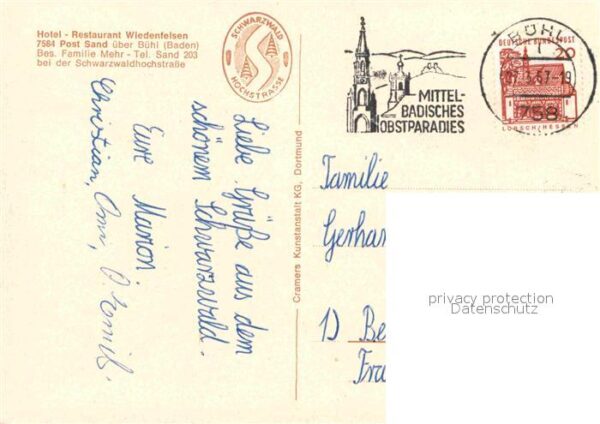 Hotel - Restaurant Wiedenfelsen
7584 Post Sand über Bühl (Baden)
Bes. Familie Mehr - Tel. Sand 203
bei der Schwarzwaldhochstraße
SCHWARZWALD
HOCHSTRASSE
Liebe Grüße aus dem
schönem Schwarzwald.
Eure Marion,
Christian, Omi,
Cramers Kunstanstalt KG, Dortmund
MITTEL-
BADISCHES
OBSTPARADIES
BÜHL
758
DEUTSCHE BUNDESPOST
20
LORSCH/HESSEN
Familie
Gerhar
1) Be
Fra
privacy protection
Datenschutz